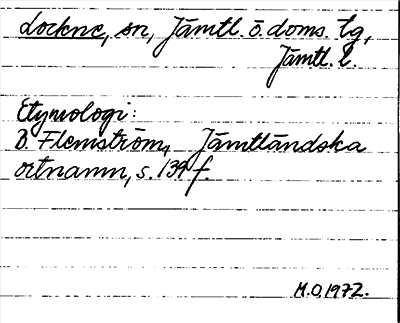 Lockne, sn, Jämtl. ö. doms. tg,
Jämtl. l.
Etymologi:
B. Flemström, Jämtländska
ortnamn, s. 139 f.
M.O. 1972.